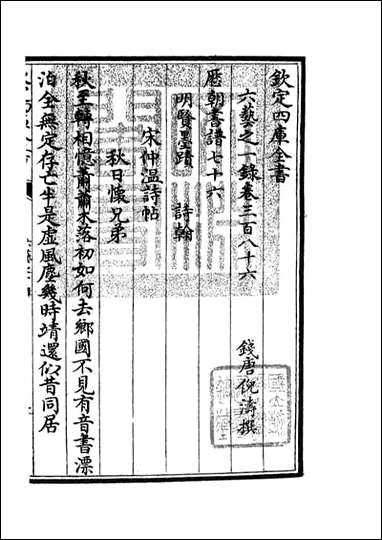 欽定四庫全書
六藝之一錄卷三百八十六
錢唐倪濤撰
歷朝書譜七十六
明賢墨蹟 詩翰
宋仲温詩帖
秋日懷兄弟
秋至轉相憶蕭蕭木落初如何去鄉國不見有音書漂
泊全無定存亡半是虛風塵幾時靖還似昔同居